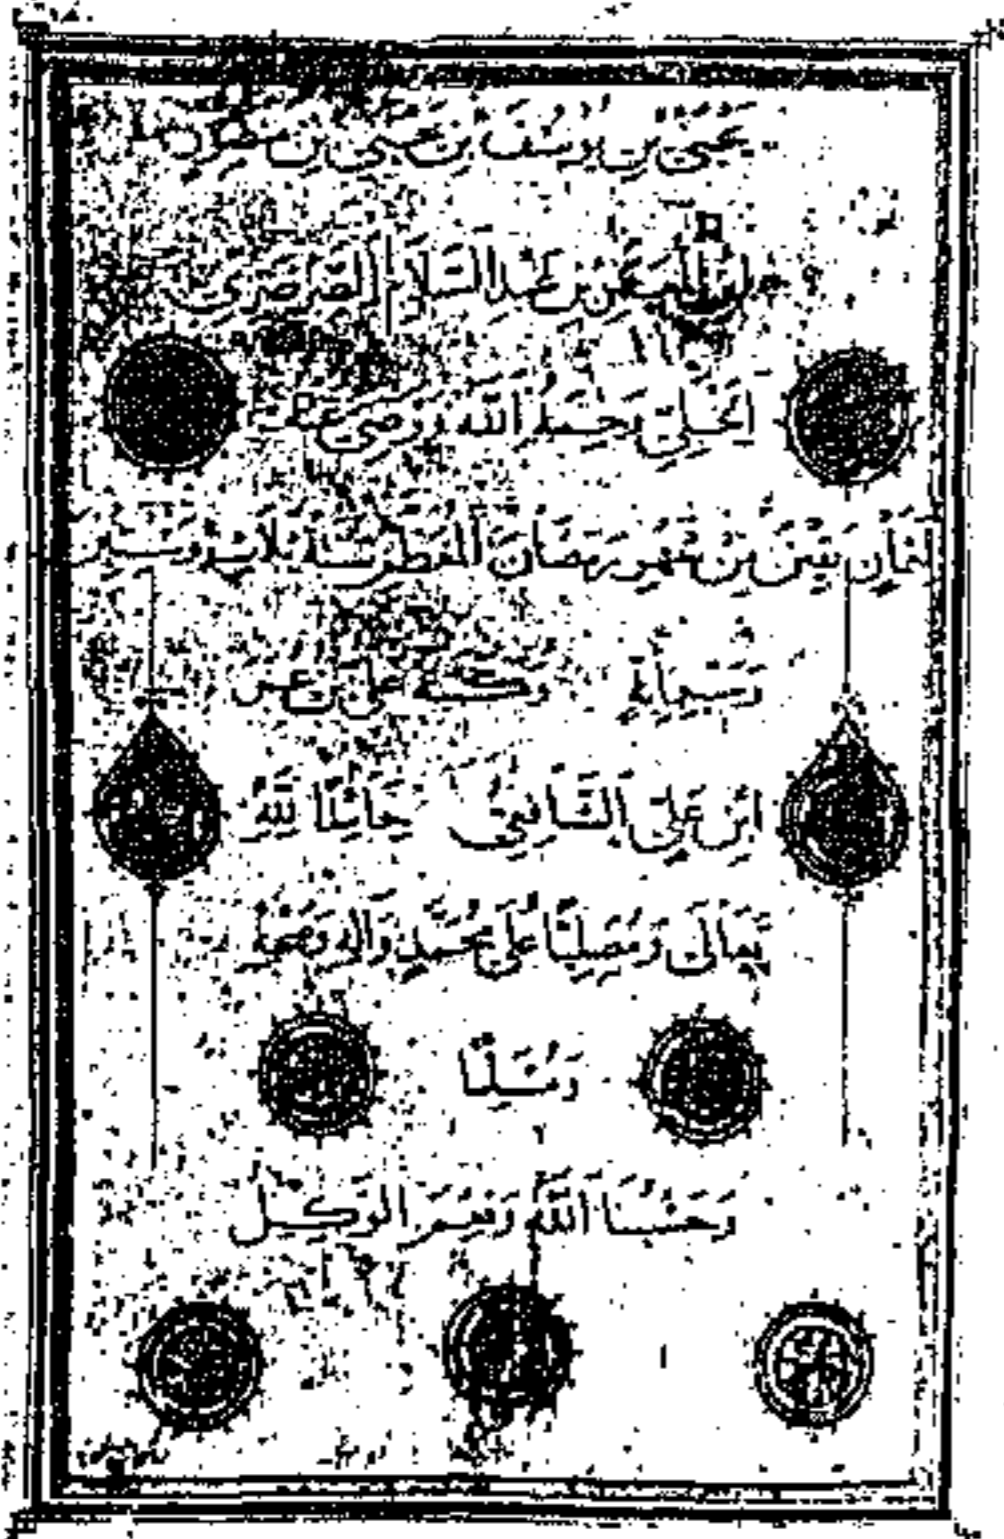 يَحْيَى بْنِ يُوسُفَ بْنِ يَحْيَى بْنِ
بْنِ عَبْدِ السَّلَامِ الصَّرْصَرِيِّ
رَحِمَهُ اللَّهُ وَرَضِيَ عَنْهُ
مِنْ شَهْرِ رَمَضَانَ الْمُعَظَّمِ ثَلَاثٍ
وَسِتِّمِائَةٍ وَكَتَبَهُ عَلِيُّ بْنُ عُمَرَ
ابْنِ عَلِيٍّ الشَّافِعِيُّ حَامِدًا لِلَّهِ
تَعَالَى وَمُصَلِّيًا عَلَى مُحَمَّدٍ وَآلِهِ وَصَحْبِهِ
وَمُسَلِّمًا
وَحَسْبُنَا اللَّهُ وَنِعْمَ الْوَكِيلُ